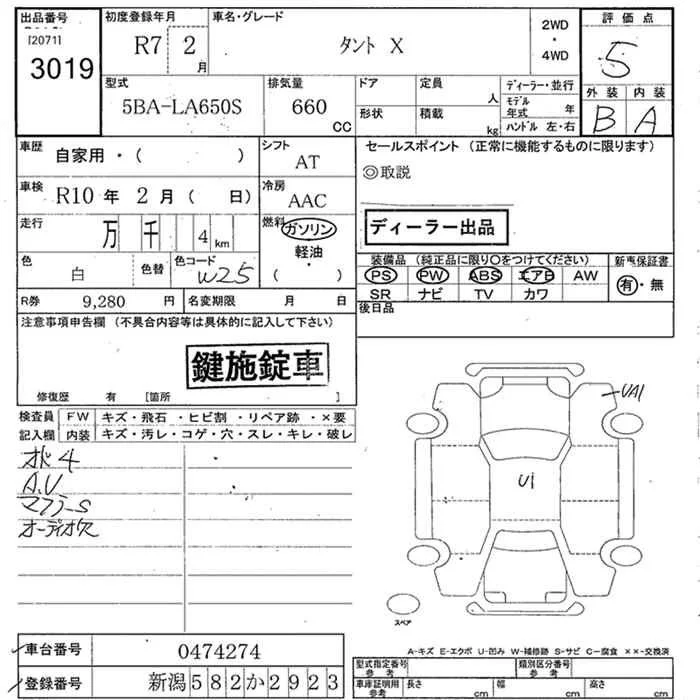 出品番号 初度登録年月 車名・グレード 2WD ・ 4WD 評価点
[2071] 3019 R7 2月 タント X 5
外装 内装
B A
型式 排気量 ドア 定員 人 ディーラー・並行
5BA-LA650S 660 CC 形状 積載 kg モデル年式 年 ハンドル 左・右
車歴 自家用・( ) シフト AT セールスポイント (正常に機能するものに限ります)
◎取説
車検 R10年 2月 ( 日) 冷房 AAC
ディーラー出品
走行 万 千 4 km 燃料 ガソリン 軽油・ ( )
色 白 色替 色コード W25
装備品 (純正品に限り〇をつけてください) 新車保証書
PS PW ABS エアB AW 有・無
SR ナビ TV カワ
R券 9,280 円 名変期限 月 日 後日品
注意事項申告欄 (不具合内容等は具体的に記入して下さい)
鍵施錠車
修復歴 有 [箇所 ]
検査員記入欄 FW キズ・飛石・ヒビ割・リペア跡・×要
内装 キズ・汚レ・コゲ・穴・スレ・キレ・破レ
オド4
A.U
マフラーS
オーディオ欠
UA1
U1
スペア
A-キズ E-エクボ U-凹み W-補修跡 S-サビ C-腐食 ××-交換済
車台番号 0474274
登録番号 新潟582か2923
型式指定番号 参考 類別区分番号 参考
車庫証明用 参考 長さ cm 幅 cm 高さ cm